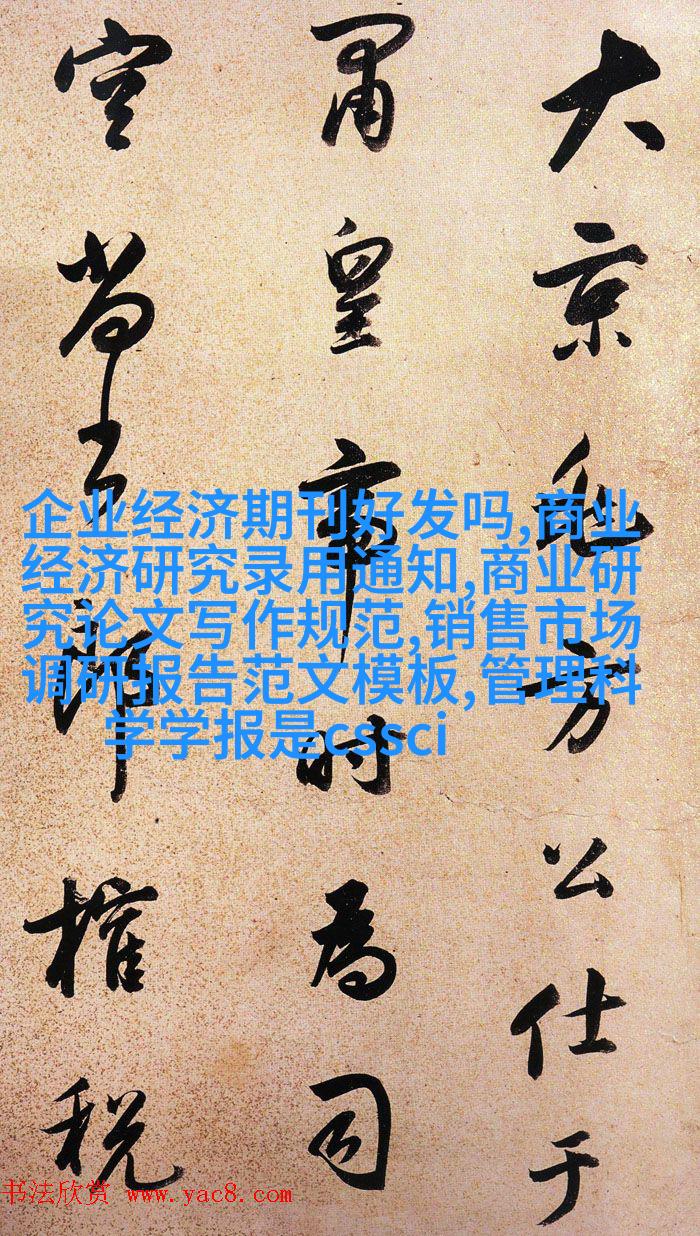 大京兆方公仕于
肅皇帝时為司
空尚书郎榷税
企业经济期刊好发吗,商业
经济研究录用通知,商业研
究论文写作规范,销售市场
调研报告范文模板,管理科
学学报是cssci
书法欣赏 www.yac8.com